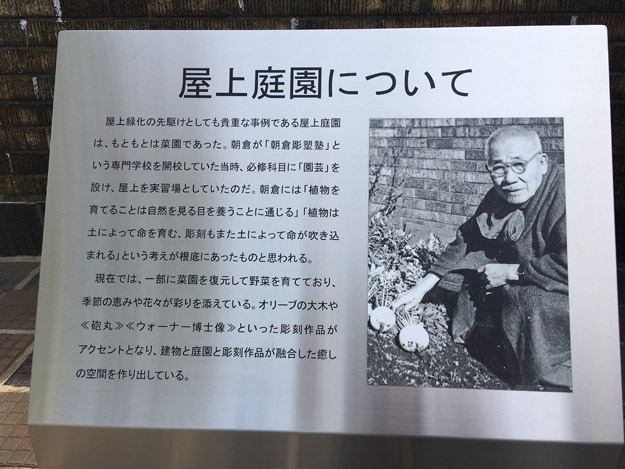 屋上庭園について
屋上緑化の先駆けとしても貴重な事例である屋上庭園
は、もともとは菜園であった。朝倉が「朝倉彫塑塾」と
いう専門学校を開校していた当時、必修科目に「園芸」を
設け、屋上を実習場としていたのだ。朝倉には「植物を
育てることは自然を見る目を養うことに通じる」「植物は
土によって命を育む、彫刻もまた土によって命が吹き込
まれる」という考えが根底にあったものと思われる。
現在では、一部に菜園を復元して野菜を育てており、
季節の恵みや花々が彩りを添えている。オリーブの大木や
≪砲丸≫≪ウォーナー博士像≫といった彫刻作品が
アクセントとなり、建物と庭園と彫刻作品が融合した癒し
の空間を作り出している。